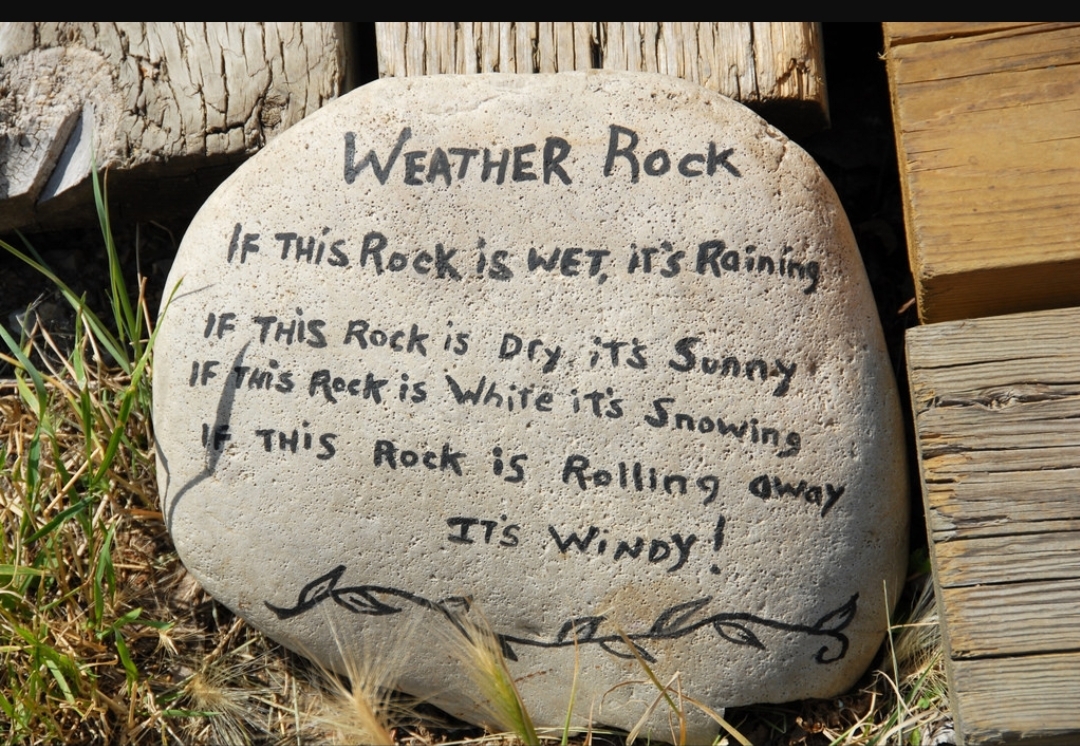 WEATHER Rock
IF THiS Rock is WET, iT's Raining
IF THiS Rock is Dry, iT's Sunny
IF THis Rock is White iT's Snowing
IF THiS Rock is Rolling away
IT's WiNDy!